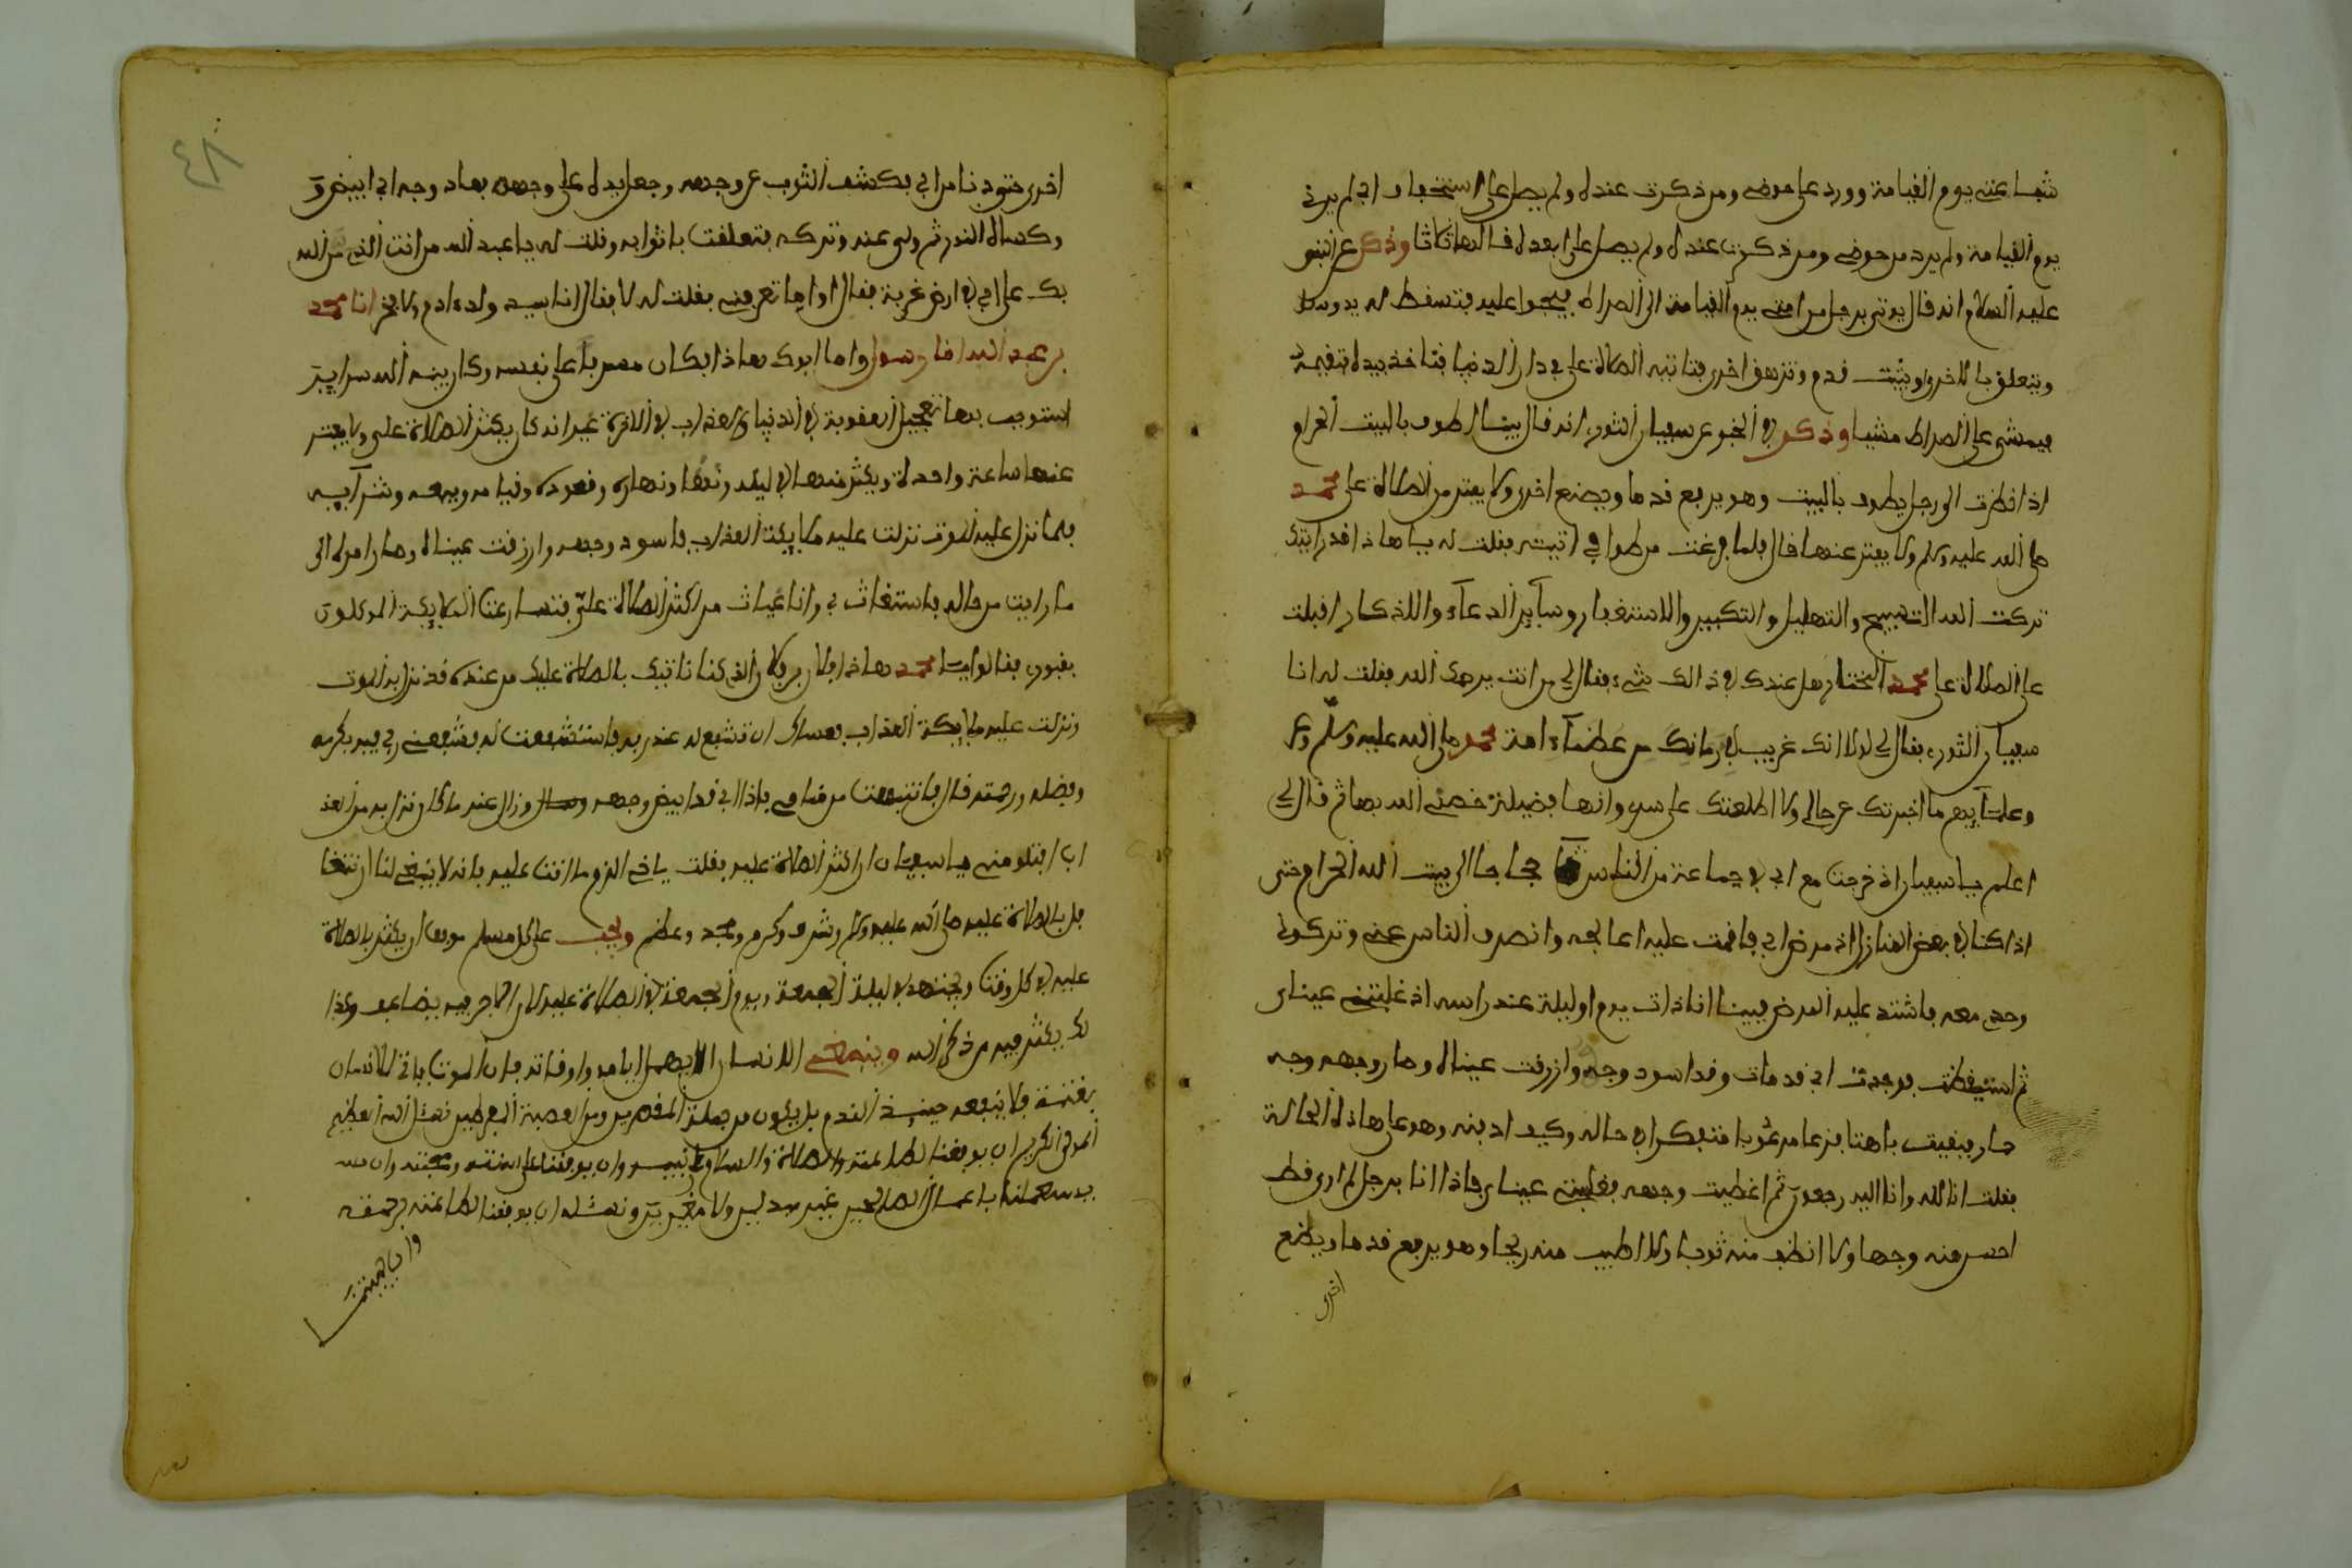 شفاعتي يوم القيامة وورد على حوضي ومن ذكرت عنده ولم يصل علي استخفافا بي لم يرني
يوم القيامة ولم يرد من حوضي ومن ذكرت عنده ولم يصل علي ابعده قالها ثلاثا وذكر عن النبي
عليه السلام انه قال يوتى برجل من امتي يوم القيامة الى الصراط فيحبوا عليه فتسقط له يد وسط
ويتعلق بالاخرى ويثبت قدم وتزهق اخرى فتاتيه الصلاة علي في دار الدنيا فتاخذ بيده فتقيمه
فيمشي على الصراط مشيا وذكر في الخبر عن سفيان الثوري انه قال بينا اطوف بالبيت الحرام
اذا نظرت الى رجل يطوف بالبيت وهو يرفع قدما ويضع اخرى ولا يفتر من الصلاة على محمد
صلى الله عليه وسلم ولا يفتر عنها قال فلما فرغت من طوافي اتيته فقلت له يا هاذا قد رايتك
تركت لله التسبيح والتهليل والتكبير والاستغفار وسآير الدعآء والاذكار واقبلت
على الصلاة على محمد المختار هل عندك في ذالك شيء فقال لي من انت يرحمك الله فقلت له انا
سفيان الثوري فقال لي لولا انك غريب في زمانك من عظمآء امة محمد صلى الله عليه وسلم
وعلمآيهم ما اخبرتك عن حالي ولا اطلعتك على سري وانها فضيلة خصني الله بها ثم قال لي
اعلم يا سفيان اذ خرجت مع ابي في جماعة من الناس حجاجا الى بيت الله الحرام حتى
اذا كنا في بعض المنازل اذ مرض ابي فاقمت عليه اعالجه وانصرف الناس عني وتركوني
وحدي معه فاشتد عليه المرض فبينا انا ذات يوم او ليلة عند راسه اذ غلبتني عيناي
ثم استيقظت فوجدت ابي قد مات وقد اسود وجهه وازرقت عيناه وصار وجهه وجه
حمار ينهق فاهتا فزعا مرعوبا متفكرا في حاله وكيف ادفنه وهو على هاذه الحالة
فقلت انا لله وانا اليه راجعون ثم اغطيت وجهه فغلبتني عيناي فاذا انا برجل لم ارى قط
احسن منه وجها ولا انظف منه ثوبا ولا اطيب منه ريحا وهو يرفع قدما ويضع
اخرى
٤٨
اخرى حتى دنا من ابي فكشف الثوب عن وجهه وجعل يده على وجهه فعاد وجه ابي ابيض
وكساه النور ثم ولى عنه وتركه فتعلقت باثوابه وقلت له يا عبد الله من انت الذي من الله
بك على ابي في ارض غربة فقال او اما تعرفني فقلت له لا فقال انا سيد ولد ءادم ولا فخر انا محمد
بن عبد الله واما ابوك هاذا فكان مسرفا على نفسه وكان بينه وبين الله سراير
استوجب بها تعجيل العقوبة في الدنيا والعذاب في الاخرة غير انه كان يكثر الصلاة علي ولا يفتر
عنها ساعة واحدة ويكثر منها في ليله ونهاره وقعوده وقيامه وبيعه وشرآيه
فلما نزل عليه الموت نزلت عليه ملايكة العذاب فاسود وجهه وازرقت عيناه وصار امره الى
ما رايت من حاله فاستغاث بي وانا غياث من اكثر الصلاة علي فتسارعت الملايكة الموكلون
بقبري فقالوا يا محمد هاذا فلان بن فلان الذي كنا ناتيك بالصلاة عليك من عنده قد نزل به الموت
ونزلت عليه ملايكة العذاب فعساك ان تشفع له عند ربه فاستشفعت له فشفعني ربي فيه بكرمه
وفضله ورحمته قال فانتبهت من منامي فاذا ابي قد ابيض وجهه وزال عنه ما كان نزل به من العذ
اب افتلومني يا سفيان ان اكثر الصلاة عليه فقلت يا اخي الزم ما انت عليه فانه لا ينبغي لنا ان نتغا
فل بالصلاة عليه صلى الله عليه وسلم وشرف وكرم ومجد وعظم ويجب على كل مسلم موفق ان يكثر بالصلاة
عليه في كل وقت ويجتهد في ليلة الجمعة ويوم الجمعة في الصلاة عليه لان الاجر فيه يضاعف وكذا
لك يكثر فيه من ذكر الله وينبغي للانسان الا يهمل ايامه واوقاته فان الموت ياتي الانسان
بغتة فلا ينفعه حينيذ الندم بل يكون من جملة المقصرين ومن العصبة المفرطين نسئل الله العظيم
المولى الكريم ان يوفقنا لطاعته والصلاة والسلام على نبيه وان يوفقنا على سنته ومحبته وان
يستعملنا باعمال الصالحين غير مبدلين ولا مغيرين ونسئله ان يوفقنا لطاعته برحمته
وان يا هميتنا